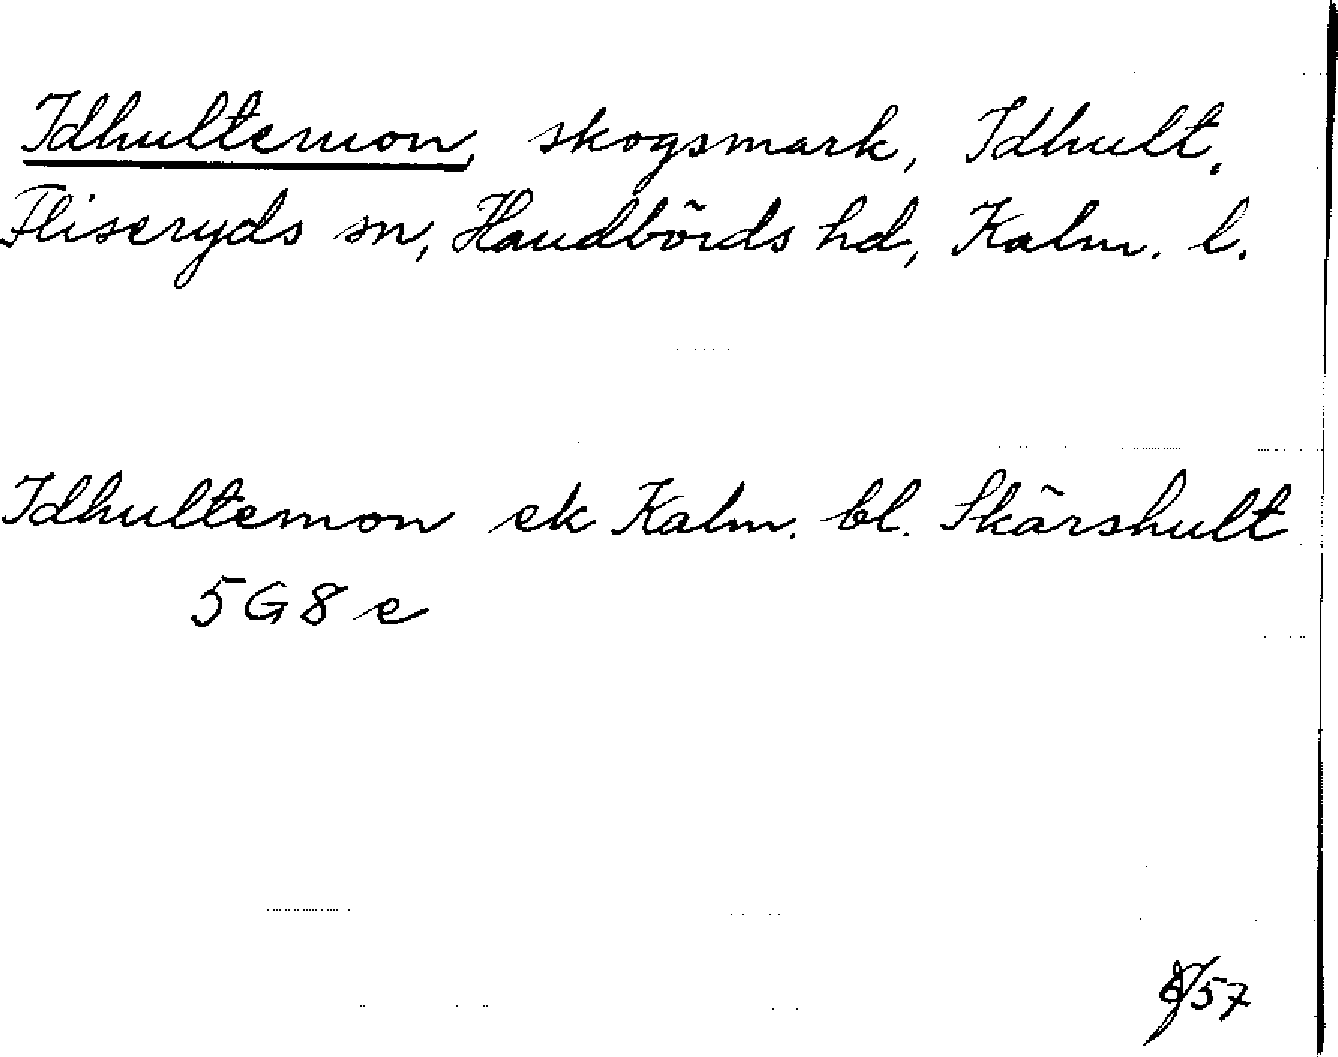 Idhultemon, skogsmark, Idhult,
Fliseryds sn, Handbörds hd, Kalm. l.
Idhultemon ek Kalm. bl. Skärshult
5G8e
/57